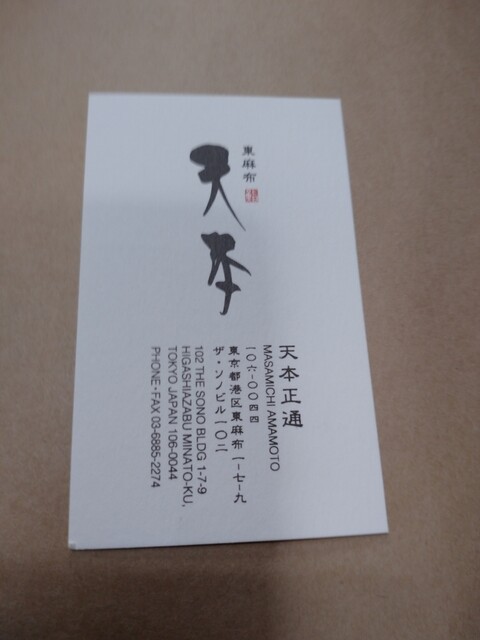 東麻布
天本
天本正通
MASAMICHI AMAMOTO
一〇六-〇〇四四
東京都港区東麻布一-七-九
ザ・ソノビル一〇二
102 THE SONO BLDG 1-7-9
HIGASHIAZABU MINATO-KU,
TOKYO JAPAN 106-0044
PHONE・FAX 03-6885-2274